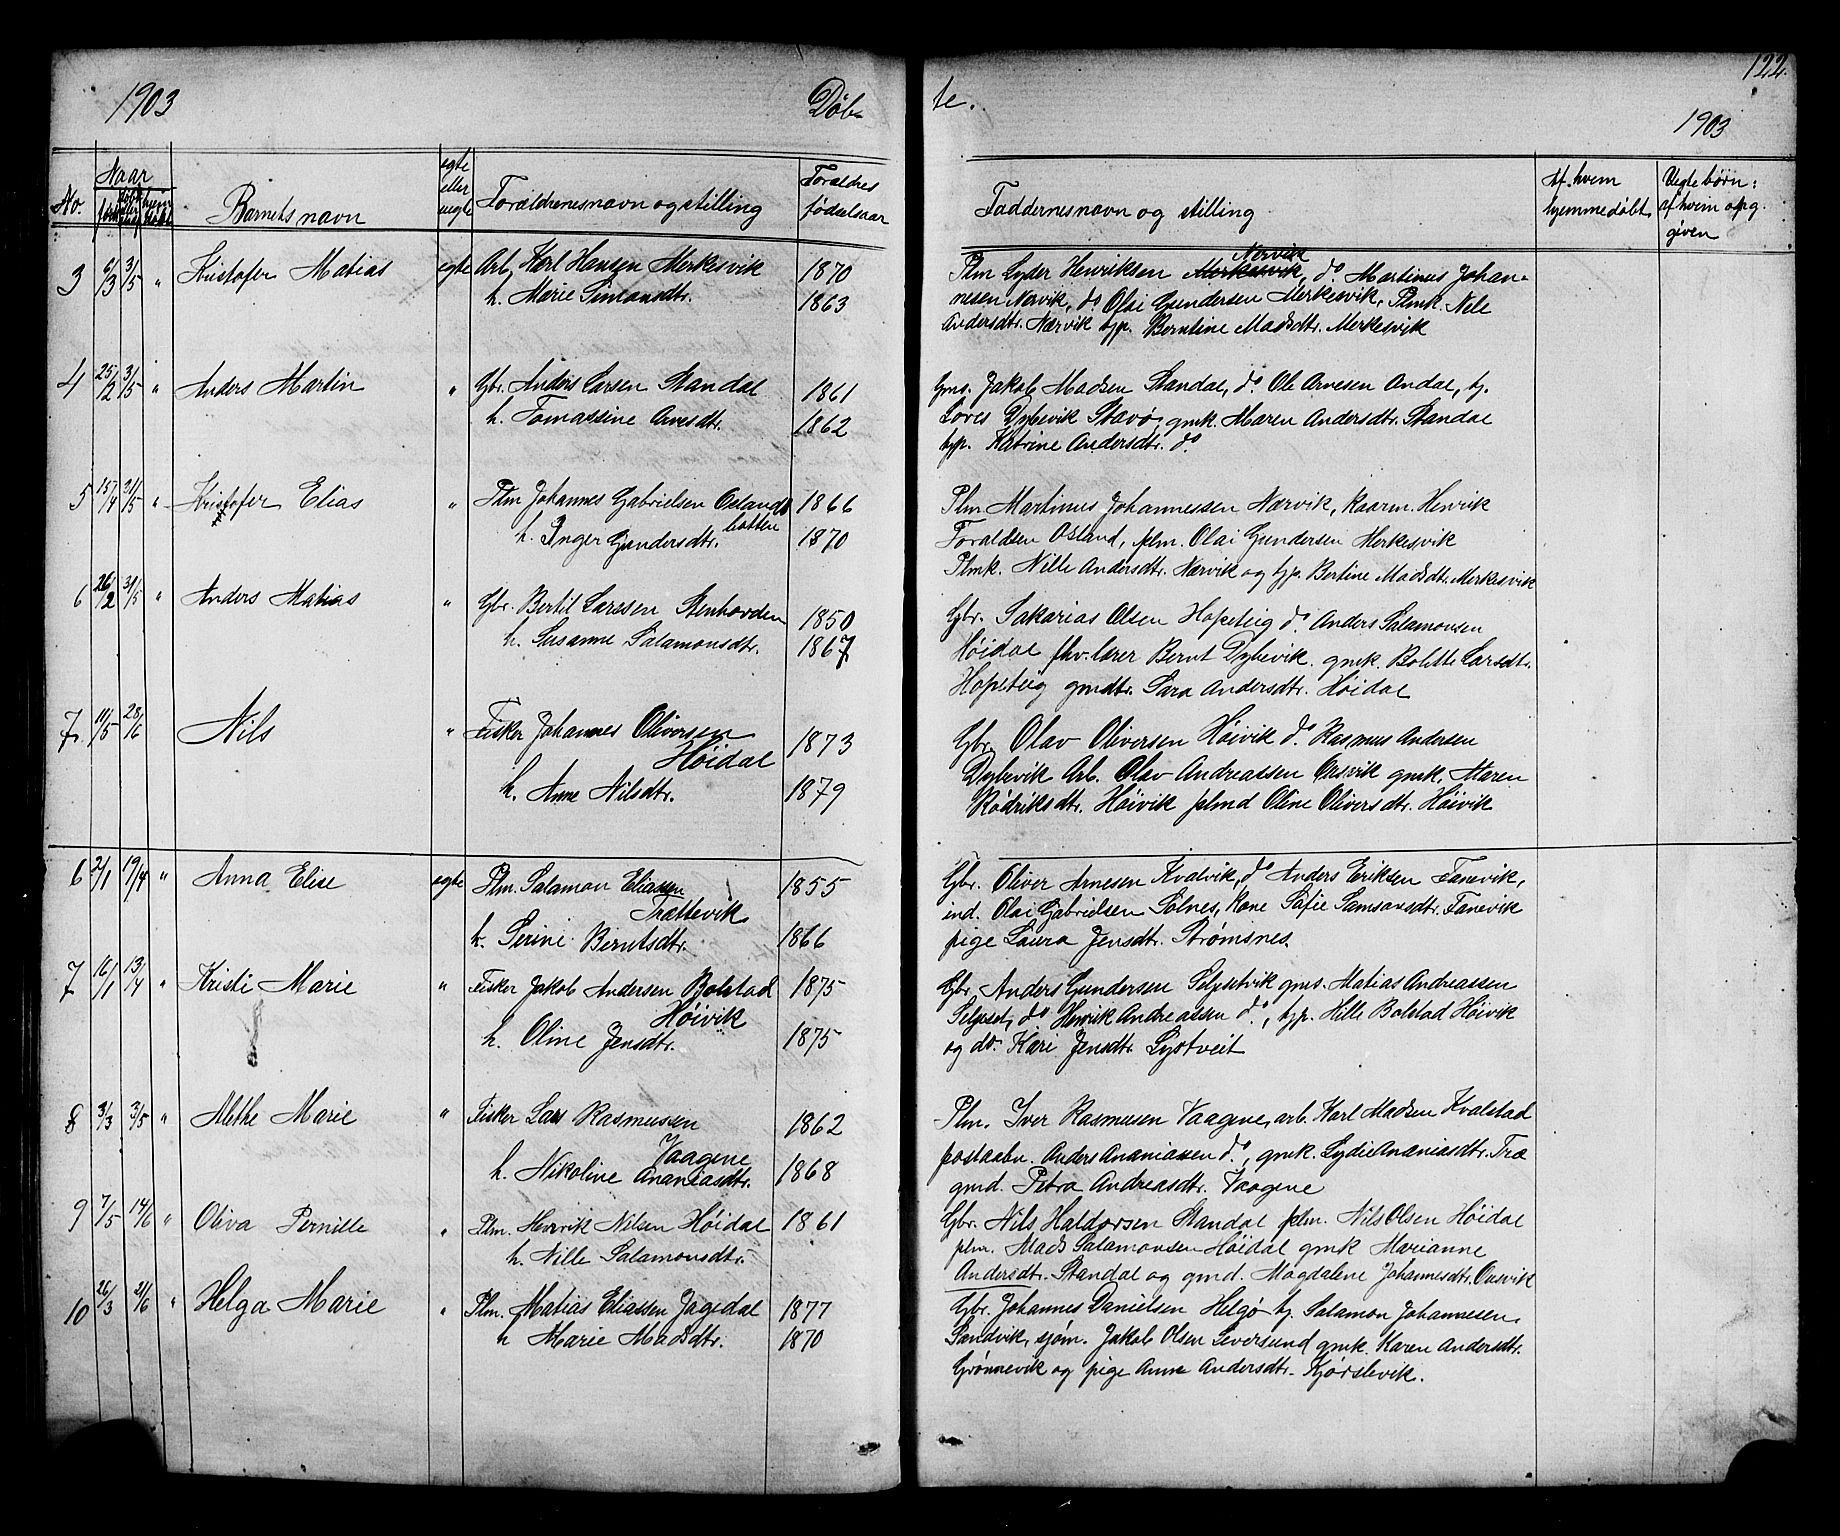 1903 Døb-
te. 122.
1903
No.
Naar
født
Barnets navn
egte
eller
uegte
Forældrenes navn og stilling
Forældres
fødselsaar
Faddernes navn og stilling
Af hvem
hjemmedøbt
Uegte børn:
af hvem opg.
given
3 6/3 3/5 " Kristofer Matias egte Arb. Karl Hansen Merkesvik 1870
h. Marie Simonsdtr. 1863
Nervik
Plm Lyder Henriksen Merkesvik, do Martinus Johan-
nesen Nervik, do. Olai Gundersen Merkesvik, Plmk. Nele
Andersdtr. Nærvik tjp. Berntine Madsdtr. Merkesvik
4 25/2 3/5 " Anders Martin " Gbr. Anders Larsen Standal 1861
h. Tomassine Arnesdtr. 1862
Gms. Jakob Madsen Standal, do Ole Arnesen Andal, tj.
Sores Dybevik Stavø, gmk. Maren Andersdtr. Standal
tjp. Katrine Andersdtr. do
5 15/4 31/5 " Kristofer Elias " Plm Johannes Gabrielsen Oslands 1866
botten
h. Inger Gundersdtr. 1870
Plm Martinus Johannessen Nærvik, kaarm. Henrik
Toraldsen Osland, plm. Olai Gundersen Merkesvik
Plmk. Nille Andersdtr. Nærvik og tjp. Bertine Madsdtr. Merkesvik
6 26/2 31/5 " Anders Matias " Gbr. Bertil Larssen Stenhovden 1850
h. Susanne Salamonsdtr. 1867
Gbr. Sakarias Olsen Hopeteig do. Anders Salamonsen
Høidal fhv. lærer Bernt Dybevik. gmk. Bolette Larsdtr.
Hopeteig gmdtr. Sara Andersdtr. Høidal
7. 11/5 28/6 Nils " Fisker Johannes Oliversen
Høidal 1873
h. Anne Nilsdtr. 1879
Gbr. Olav Oliversen Høivik do. Rasmus Andersen
Dybevik Arb. Olav Andreassen Ousvik gmk. Maren
Rødriksdtr. Høivik plmd Oline Oliversdtr. Høivik
6 2/1 19/4 " Anna Elise egte Plm. Salamon Eliassen 1855
Trættevik
h. Serine Berntsdtr. 1866
Gbr. Oliver Arnesen Kvalvik, do Anders Eriksen Fanevik,
ind. Olai Gabrielsen Solnes, kone Sofie Samsonsdtr. Fanevik
pige Laura Jensdtr. Strømsnes.
7 16/1 13/4 " Kristi Marie " Fisker Jakob Andersen Bolstad 1875
Høivik
h. Oline Jensdtr. 1875
Gbr. Anders Gundersen Selpetvik gms. Matias Andreassen
Selpset, do Henrik Andreassen do, tjp. Hille Bolstad Høivik
og do. Kari Jensdtr. Systveit
8 3/3 3/5 " Methe Marie " Fisker Lars Rasmussen 1862
Vaagene
h. Nikoline Ananiasdtr. 1868
Plm. Iver Rasmusen Vaagene, arb. Karl Madsen Kvalstad
postaabn. Anders Ananiassen do, gmk. Lydie Ananiasdtr. Træ
gmd. Petra Andreasdtr. Vaagene
9 7/5 14/6 " Oliva Pernille " Plm. Henrik Nilsen Høidal 1861
h. Nille Salamonsdtr.
Gbr. Nils Haldorsen Standal plm. Nils Olsen Høidal
plm. Mads Salamonsen Høidal gmk Marianne
Andersdtr. Standal og gmd. Magdalene Johannesdtr. Ousvik
10 26/3 21/6 " Helga Marie " Plm. Matias Eliassen Jagedal 1877
h Marie Madsdtr. 1870
Gbr. Johannes Danielsen Helgø tj. Salamon Johannesen
Sandvik, sjøm. Jakob Olsen Leversund gmk. Karen Andersdtr.
Grønnevik og pige Anna Andersdtr. Kjørslevik.